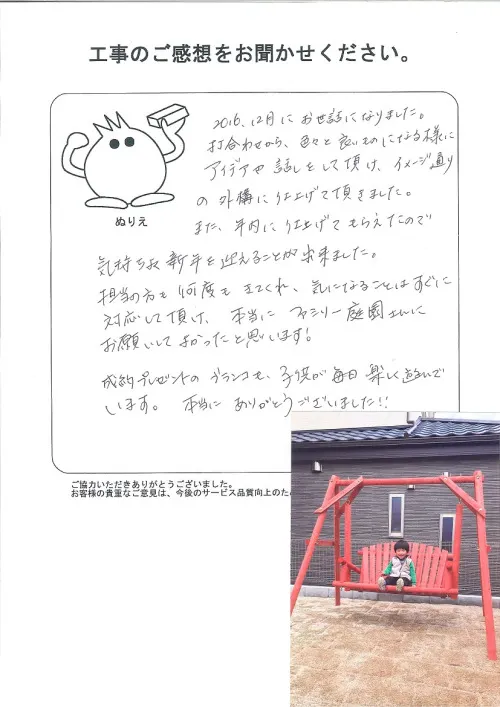 工事のご感想をお聞かせください。
2016.12月にお世話になりました。
打合わせから、色々と良いものになる様に
アイデアや話しをして頂け、イメージ通り
の外構に仕上げて頂きました。
ぬりえ
また、年内に仕上げてもらえたので
気持ちよく新年を迎えることが出来ました。
担当の方も何度もきてくれ、気になることはすぐに
対応して頂け、本当にファミリー庭園さんに
お願いしてよかったと思います!
成約プレゼントのブランコも、子供が毎日楽しく遊んで
います。本当にありがとうございました!!
ご協力いただきありがとうございました。
お客様の貴重なご意見は、今後のサービス品質向上のため